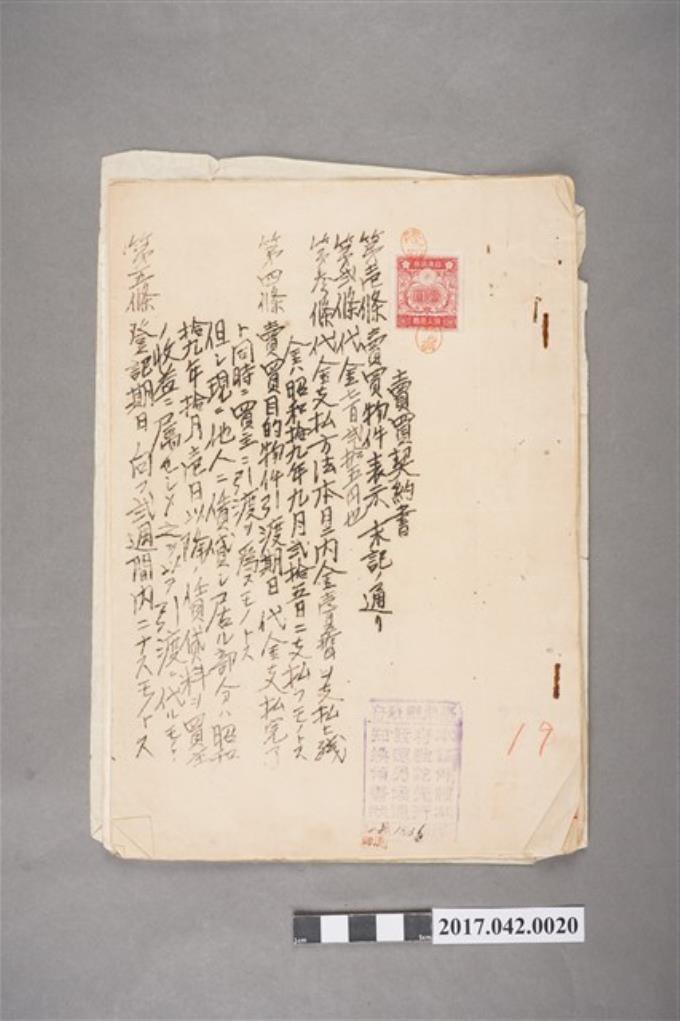 賣買契約書
第壱條 賣買物件表示 末記ノ通リ
第貳條 代金七百貳拾五円也
第参條 代金支払方法本日内金壱百円支払ヒ残
金ハ昭和拾九年九月貳拾五日ニ支払フモノトス
第四條 賣買目的物件引渡期日 代金支払完了
ト同時ニ買主ニ引渡ヲ為スモノトス
但シ現ニ他人ニ賃貸シ居ル部分ハ昭和
拾九年拾月壱日以降ノ賃貸料ヲ買主
ノ収益ニ属セシメ之ヲ以テ引渡ニ代ルモノ
第五條 登記期日 向フ貳週間内ニナスモノトス
19
2017.042.0020